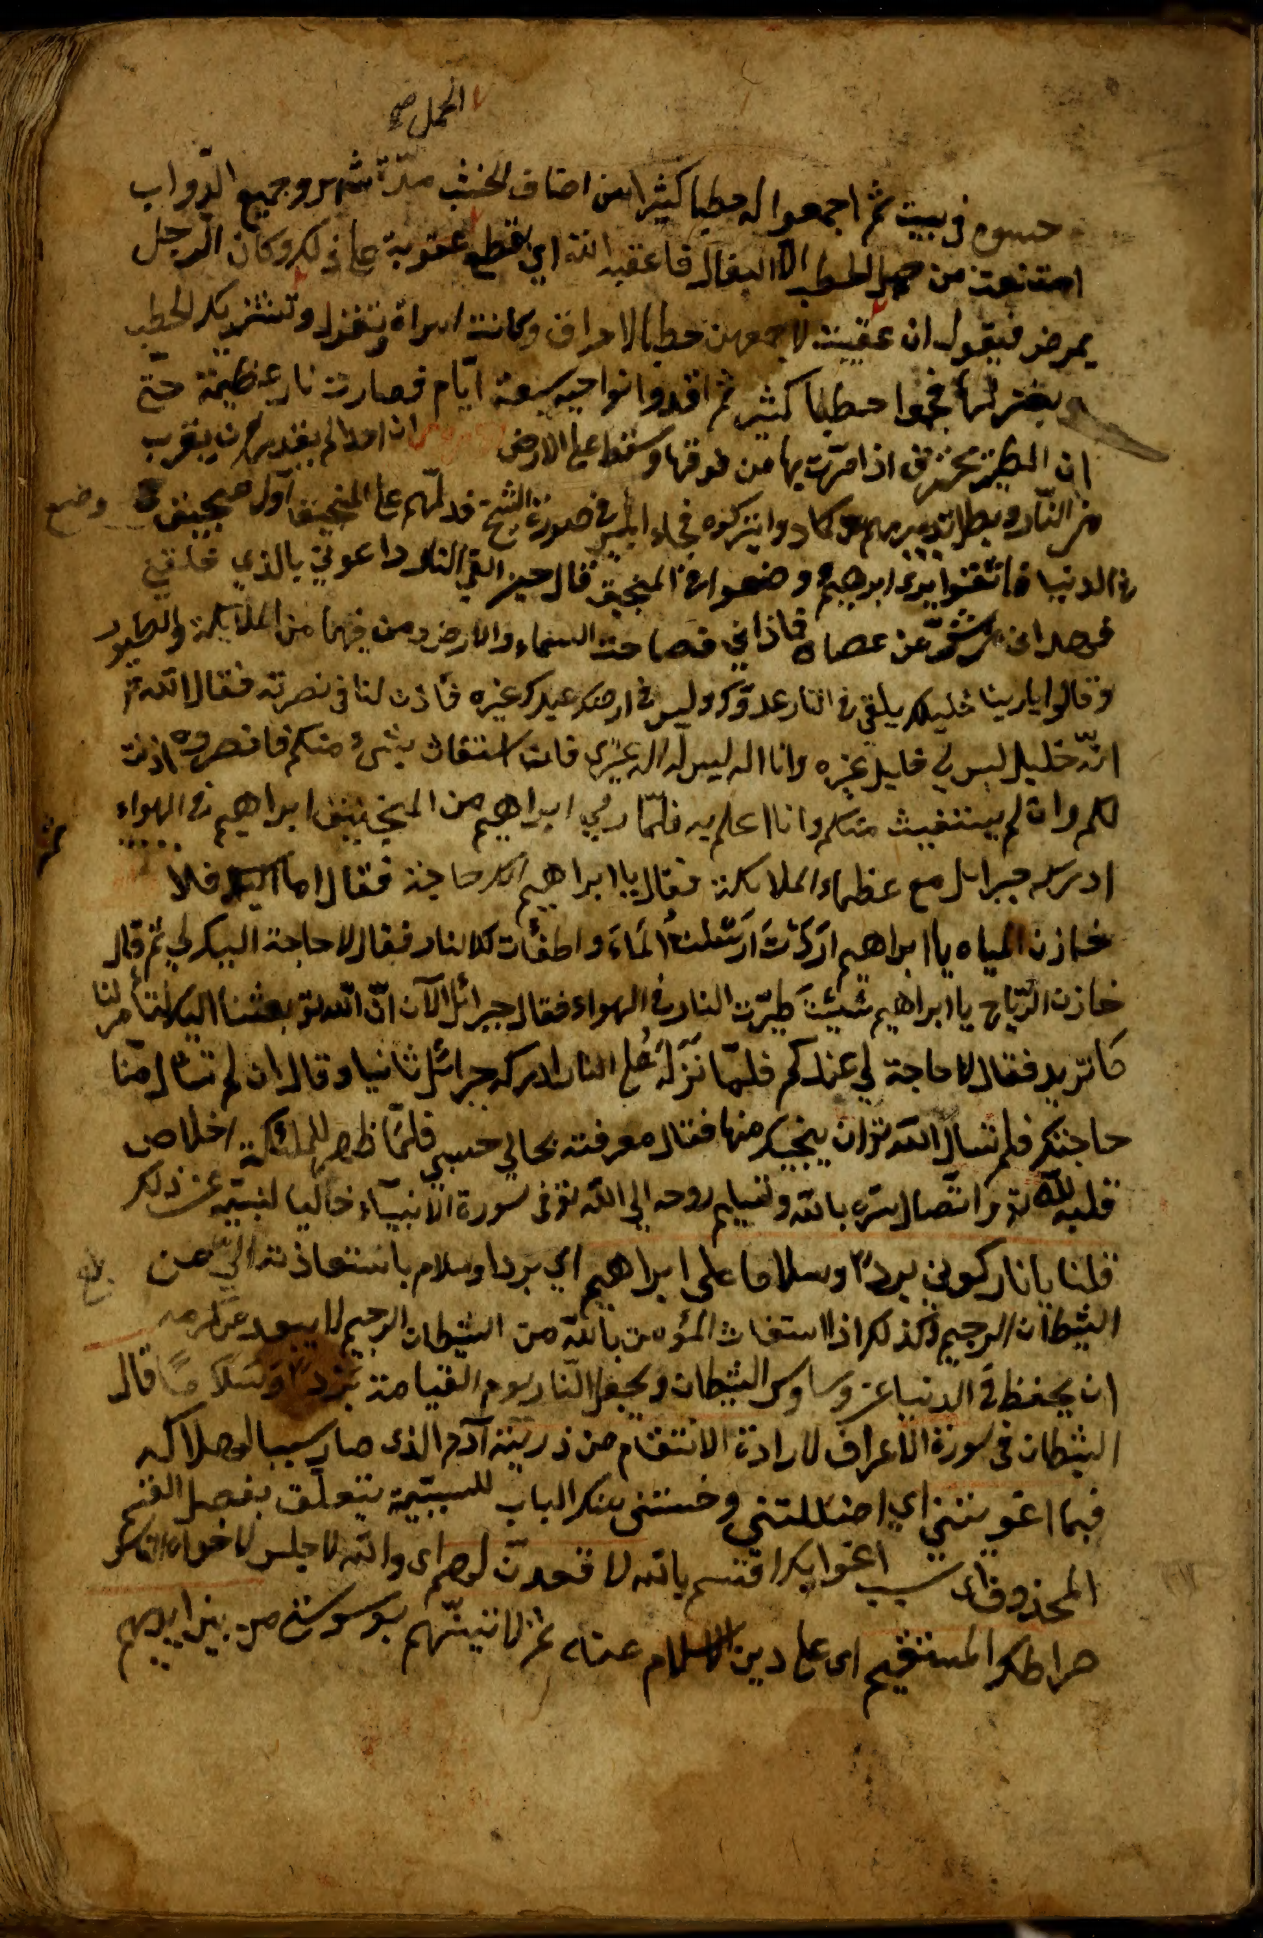 الحمل صح
حبسوه في بيت ثم اجمعوا له حطبا كثيرا من اصناف الخشب مدّة شهر وجميع الدّواب
امتنعت من حمل الحطب الا البغال فاعقبه الله اي بقطع عقوبة على ذلك وكان الرجل
يمرض فيقول ان عفيت لاجمعن حطبا لاحراق وكانت امراة تغزل وتشتري بكد الحطب
بغزلها فجمعوا حطبا كثير ثم اوقدوا نواحيه سبعة ايّام فصارت نار عظيمة حتّى
ان الطير تحترق اذا مرّت بها من فوقها وسقط على الارض ان احدا لم يقدر ان يقرب
من النّار وبطل تدبيرهم وكادوا يتركوه فجاء ابليس في صورة الشيخ فدلّهم على المنجنيق اول منجنيق وضع
في الدنيا فاتقنوا يدى ابرهيم وضعوا في المنجنيق قال حين القي النار داعوني بالذي خلقني
فهداني عن عصاه فاذاني فصاحت السماء والارض ومن فيهما من الملايكة والطيور
وقالوا يا ربنا خليلك يلقي في النار عدوك وليس في ارضك عبدك غيره فأذن لنا في نصرته فقال الله تع
انّه خليل ليس لي خليل غيره وانا اله ليس له اله غيري فان استغاث بشئ منكم فانصروه اذنت
لكم وان لم يستغيث منكم وانا اعلم به فلمّا رمي ابراهيم من المنجنيق ابراهيم في الهواء
ادركه جبرائل مع عظماء الملايكة فقال يا ابراهيم الك حاجة فقال اما اليك فلا
خازن المياه يا ابراهيم اردْتَ ارسَلْتُ المَاءَ واطفأت لك النار فقال لا حاجة اليك لي ثم قال
خازن الرّياح يا ابراهيم شيئتَ طيّرت النار في الهواء فقال جبرائل الآن انّ الله تع بعثنا اليك لتأمرنا
كما تريد فقال لا حاجة لي عندكم فلمّا نَزَلَ على النار ادركه جبرائل ثانيا وقال ان لم تسأل منّا
حاجتك فلم تسال الله تع ان ينجيك منها فقال معرفته بحالي حسبي فلمّا ظهر للملئكة اخلاص
قلبه لله تع واتّصال سرّه بالله وتسليم روحه الى الله تع في سورة الانبيآء خاليا لنبيّه عن ذلك
قلنا يا نار كوني بردا وسلاما على ابراهيم اي بردا وسلام باستعاذته اليّ من
الشيطان الرجيم وكذلك اذا استغاث المؤمن بالله من الشيطان الرجيم لا يبعد عن كرمه
ان يحفظه في الدنيا عن وساوس الشيطان ويجعل النّار يوم القيامة بَرْدًا وَسَلَامًا قال
الشيطان في سورة الاعراف لارادة الانتقام من ذريّته آدم الذى صار سببا لهلاكه
فبما اغويتني اي اضللتني وخسّئتني بتلك الباب للسببيّة يتعلّق بفعل القسم
المحذوف اى بسبب اغوايك اقسم بالله لاقعدنّ لهم اى والله لاجلس لاغواء الناس
صراطك المستقيم اى على دين الاسلام عنه ثم لاتينّهم بوسوستي من بين ايديهم